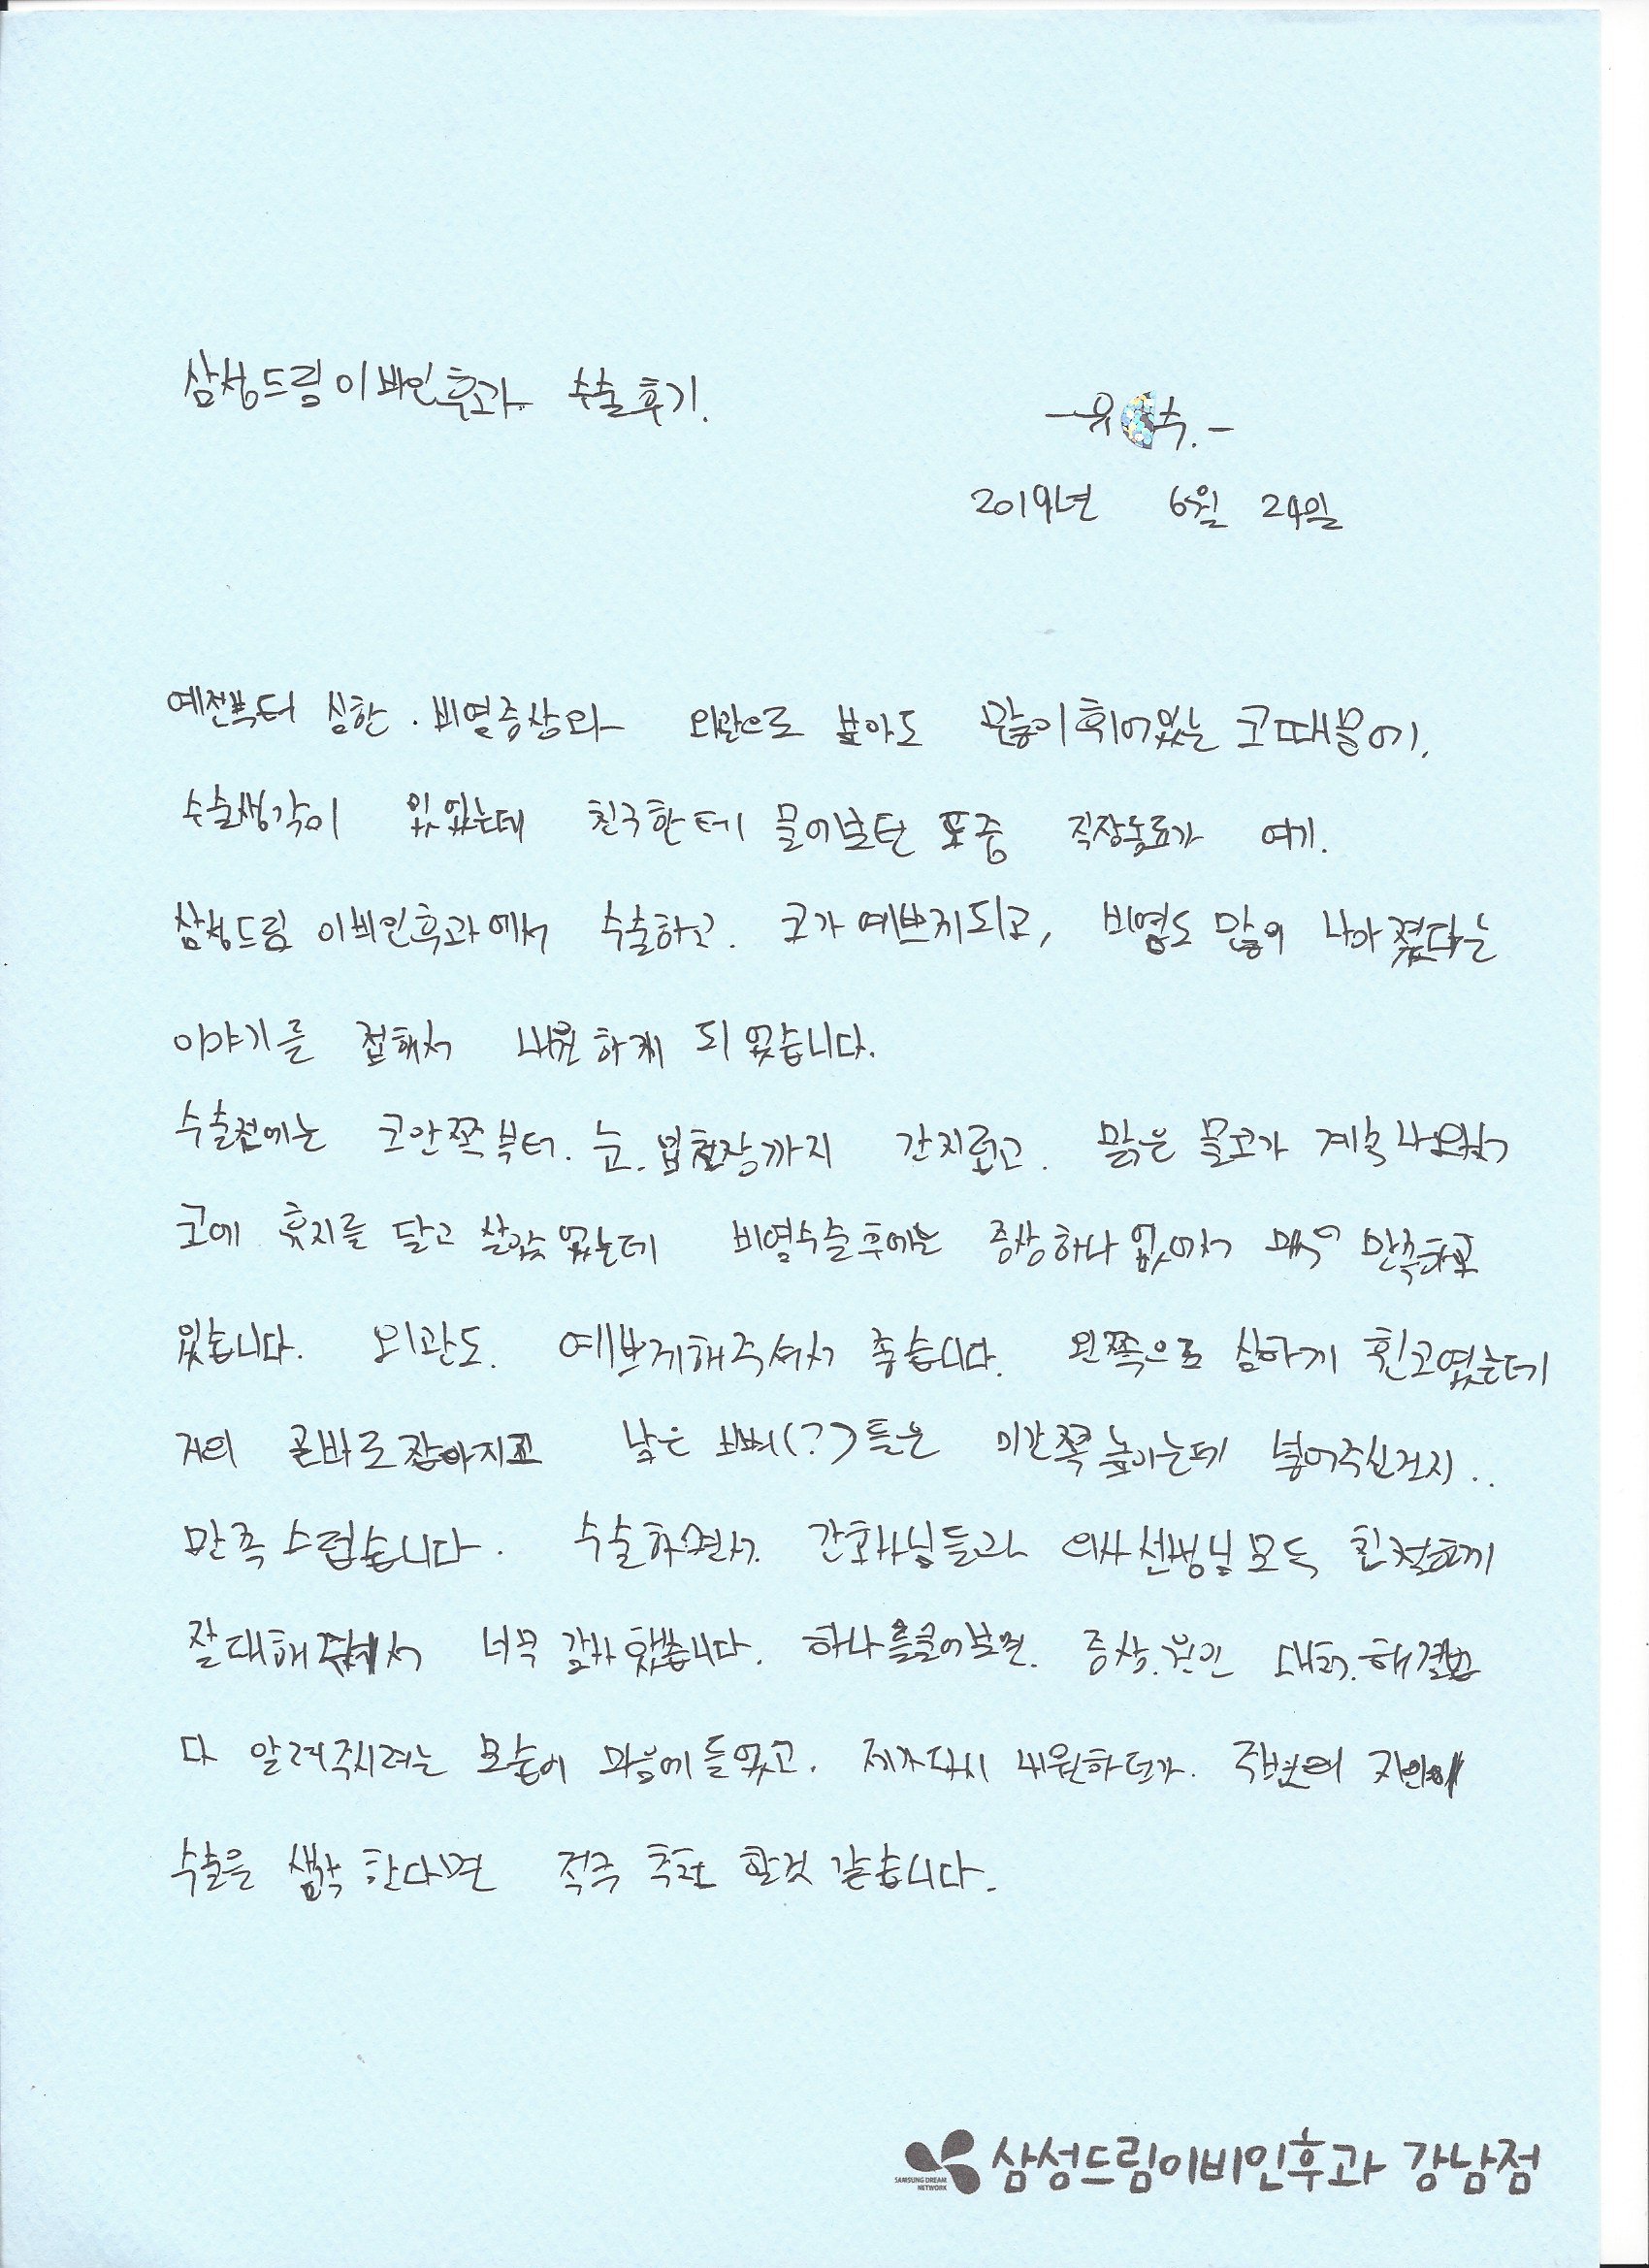 삼성드림이비인후과 수술후기.
-유 수.-
2019년 6월 24일
예전부터 심한. 비염증상와 외관으로 보아도 많이휘어있는 코때문에.
수술생각이 있었는데 친구한테 물어보던 도중 직장동료가 여기.
삼성드림 이비인후과에서 수술하고. 코가예쁘게되고, 비염도 많이 나아졌다는
이야기를 접해서 내원하게 되었습니다.
수술전에는 코안쪽부터. 눈. 입천장까지 간지럽고. 맑은 물코가 계속나와서
코에 휴지를 달고 살았었는데 비염수술후에는 증상하나없어서 매우 만족하고
있습니다. 외관도. 예쁘게해주셔서 좋습니다. 왼쪽으로 심하게 휜코였는데
거의 곧바로잡아지고 남은 뼈(?)들은 미간쪽높이는데 넣어주신건지..
만족스럽습니다. 수술하면서. 간호사님들과 의사선생님모두 친절하게
잘대해 너무 감사했습니다. 하나를물어보면. 증상.원인 대처.해결법
다 알려주시려는 모습이 마음에들었고. 제가다시 내원하던가. 주변의 지인이
수술은 생각한다면 적극 추천 할것 같습니다.
SAMSUNG DREAM
NETWORK
삼성드림이비인후과 강남점